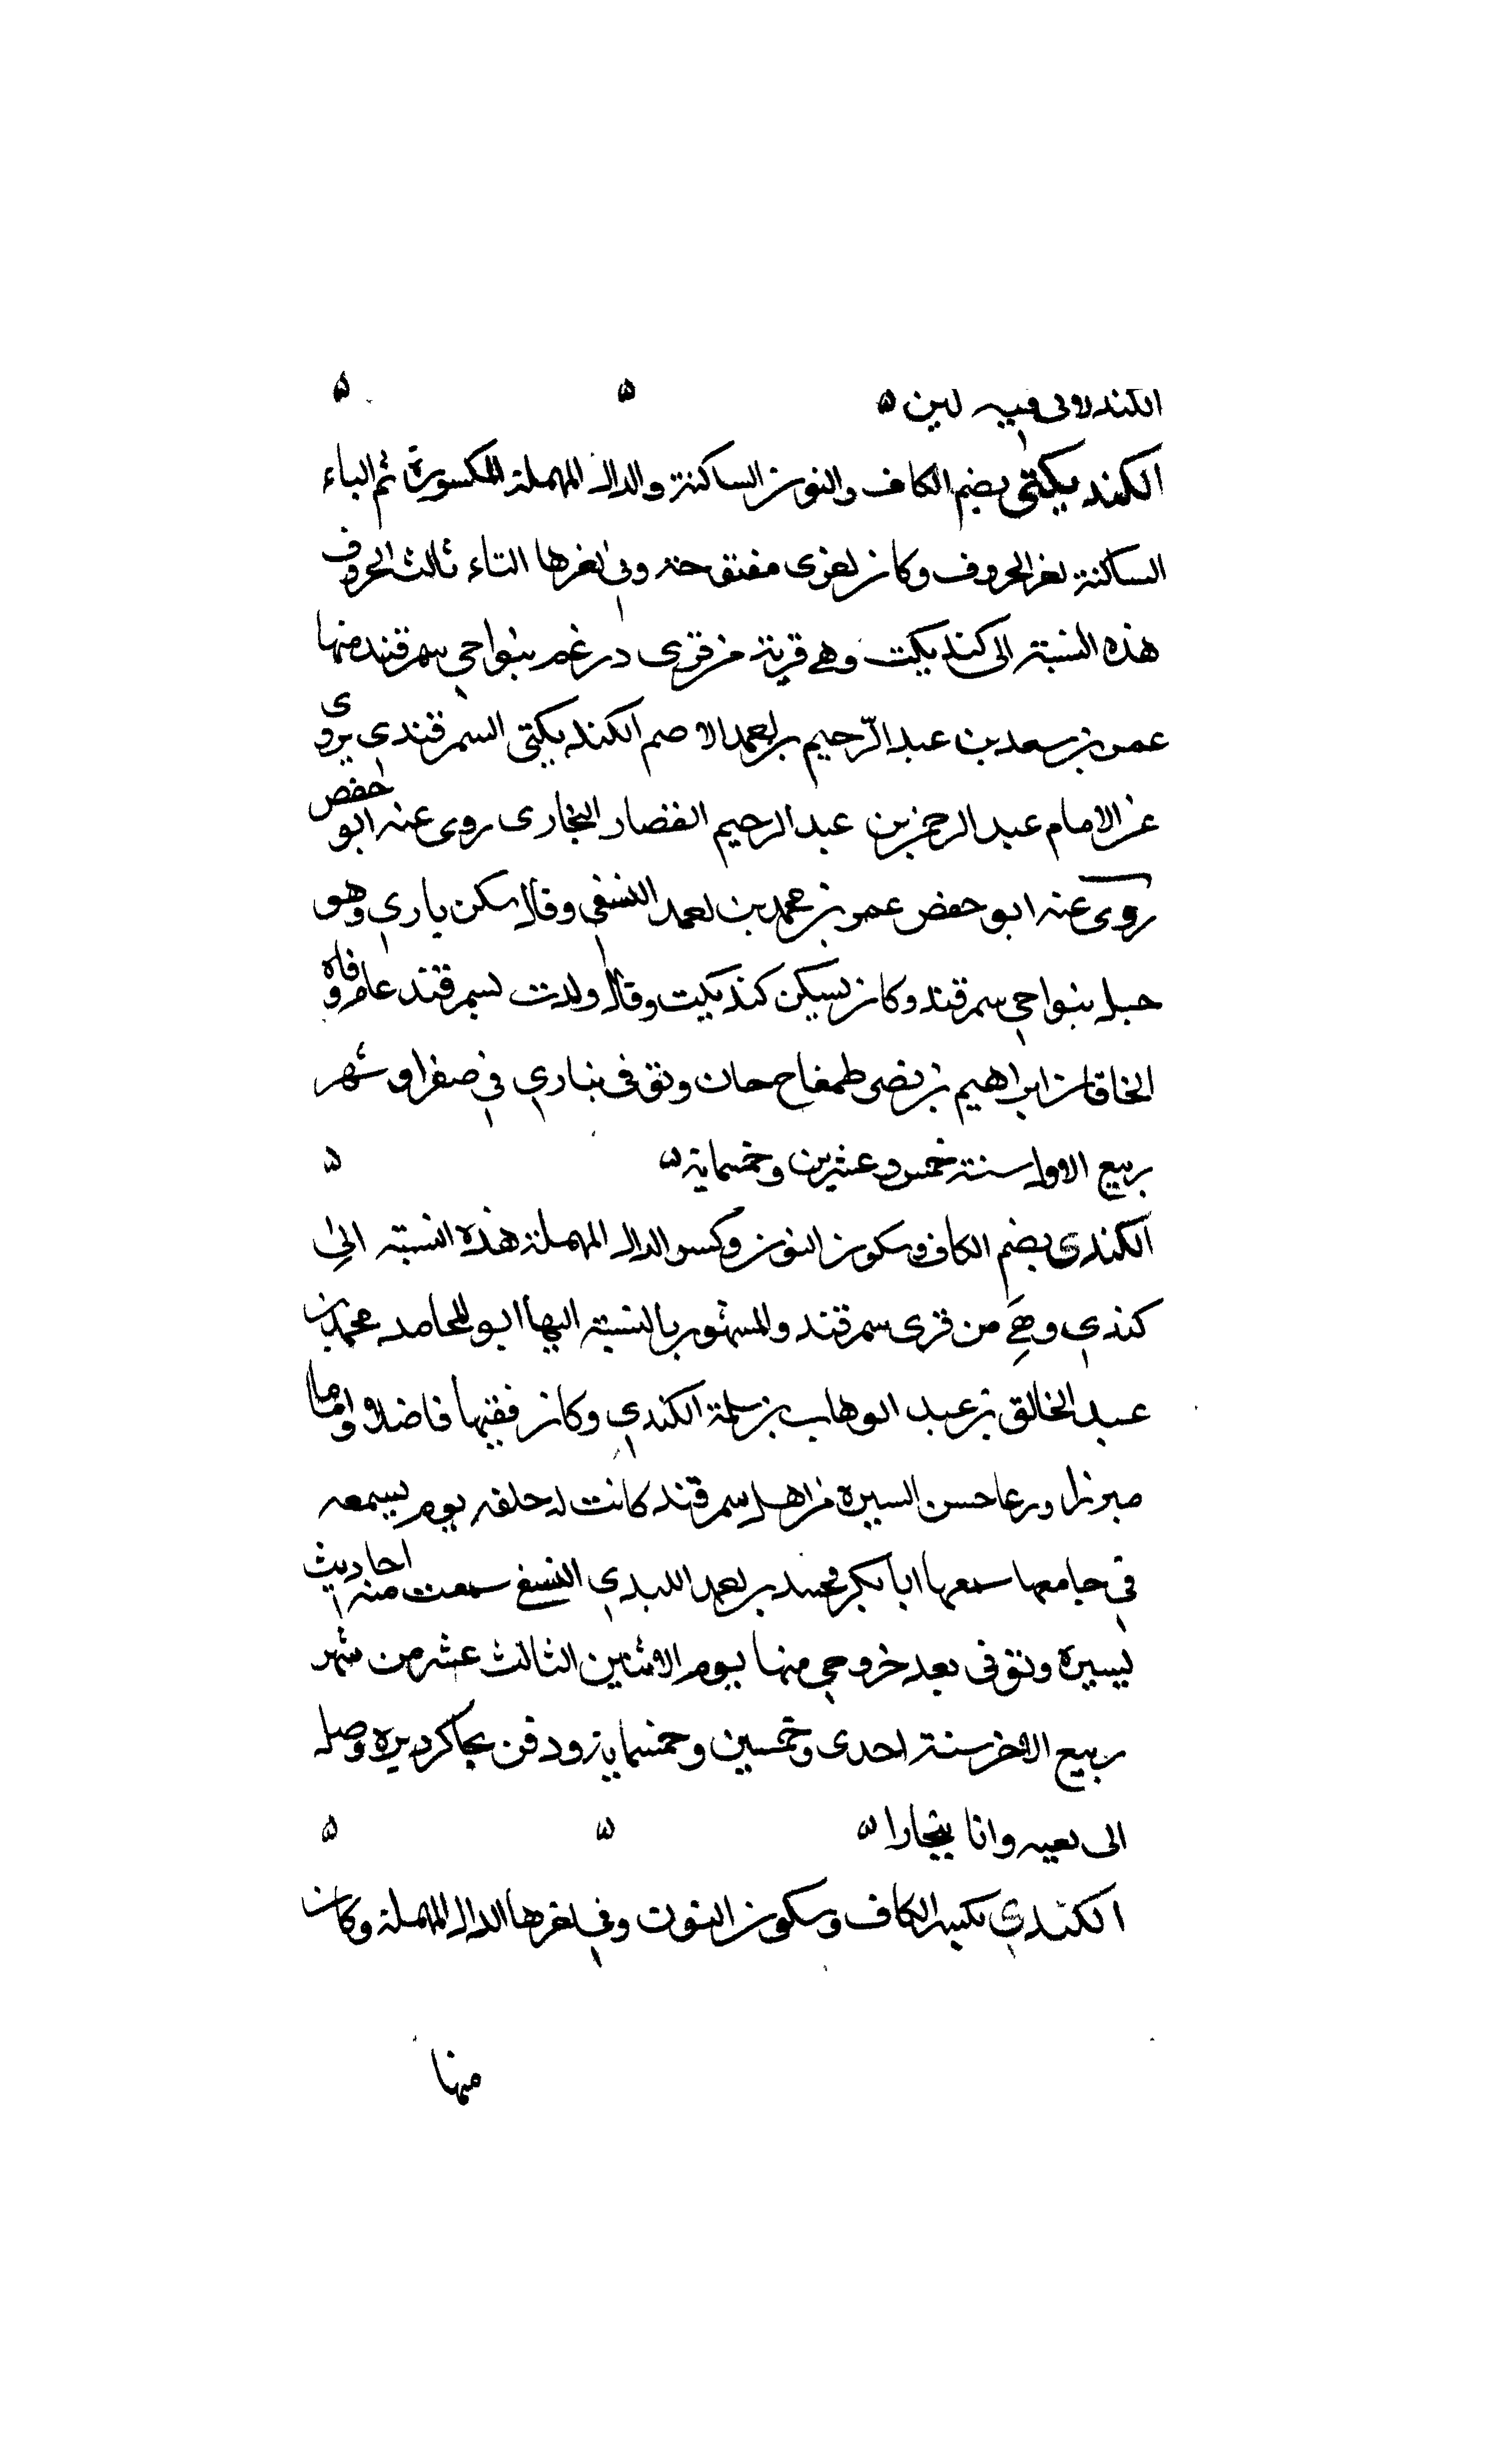 الكندلانى فيه لين ه ه ه
الكنديكتى بضم الكاف والنون الساكنة والدال المهملة المكسورة ثم الياء
الساكنة اخر الحروف وكاف اخرى مفتوحة وفى اخرها التاء ثالث الحروف
هذه النسبة الى كنديكت وهى قرية من قرى درغم بنواحى سمرقند منها
عمر بن سعد بن عبد الرحيم بن احمد الاصم الكنديكتى السمرقندى يروى
عن الامام عبد الرحمن بن عبد الرحيم القصار البخارى روى عنه ابو حفص
روى عنه ابو حفص عمر بن محمد بن احمد النسفى وقال سكن يارى وهو
جبل بنواحى سمرقند وكان يسكن كنديكت وقال ولدت بسمرقند عام وفاة
الخاقان ابراهيم بن نصر طمغاج خان وتوفى بيارى فى صفر او شهر
ربيع الاول سنة خمس وعشرين وخمسماية ه ه
الكندى بضم الكاف وسكون النون وكسر الدال المهملة هذه النسبة الى
كندى وهى من قرى سمرقند والمشهور بالنسبة اليها ابو المحامد محمد بن
عبد الخالق بن عبد الوهاب بن سلمة الكندى وكان فقيها فاضلا واماما
مبرزا ورعا حسن السيرة من اهل سمرقند كانت له حلقة يوم الجمعة
فى جامعها سمع بها ابا بكر محمد بن احمد البلدى النسفى سمعت منه احاديث
يسيرة وتوفى بعد خروجى منها يوم الاثنين الثالث عشر من شهر
ربيع الاخر سنة احدى وخمسين وخمسماية ودفن بجاكرديزه وصل
الى نعيه وانا ببخارا ه ه ه
الكندى بكسر الكاف وسكون النون وفى اخرها الدال المهملة وكان
منها